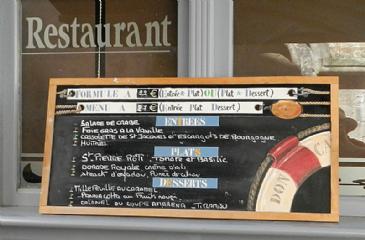 Restaurant
FORMULE A 22 € (Entrée + Plat) OU (Plat + Dessert)
MENU A € (Entrée Plat Dessert)
ENTREES
SALADE DE CRABE
FOIE GRAS A LA VANILLE
CASSOLETTE DE ST JACQUES ET ESCARGOTS DE BOURGOGNE
HUITRES
PLATS
ST PIERRE ROTI TOMATE ET BASILIC
DORADE ROYALE CREME D'AIL
STEACK D'ESPADON, PUREE DE
DESSERTS
MILLEFEUILLE AU CARAMEL
PANNA COTTA AU FRUIT ROUGE
COLONEL OU COUPE AMARENA - TIRAMISU